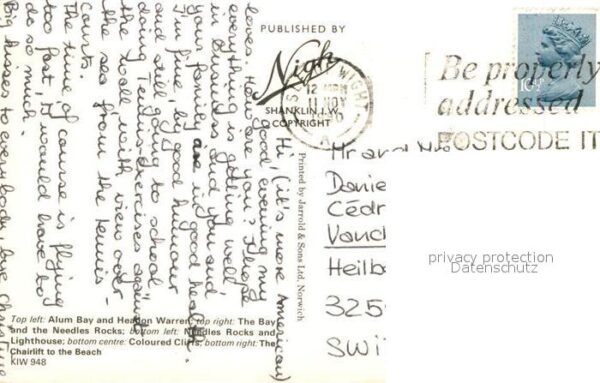 PUBLISHED BY
Nigh
SHANKLIN, I.W.
COPYRIGHT
Printed by Jarrold & Sons Ltd, Norwich
WIGHT
12 15 PM
11 NOV
Be properly
addressed
POSTCODE IT
Hi, (it's more American)
good evening my
loves. How are you? I hope
everything is getting well
in and you and
your family are in good health.
I'm fine, big good humour
and still going to school
doing Tennis exercises against
the wall, with view over
the sea from the tennis-
courts.
The time of course is flying
too fast, I would have to
do so much
Big kisses to everybody, love Christine
Mr and
Danie
Cédr
Vauch
Heilb
325
SWI
privacy protection
Datenschutz
Top left: Alum Bay and Headon Warren; top right: The Bay
and the Needles Rocks; bottom left: Needles Rocks and
Lighthouse; bottom centre: Coloured Cliffs; bottom right: The
Chairlift to the Beach
KIW 948